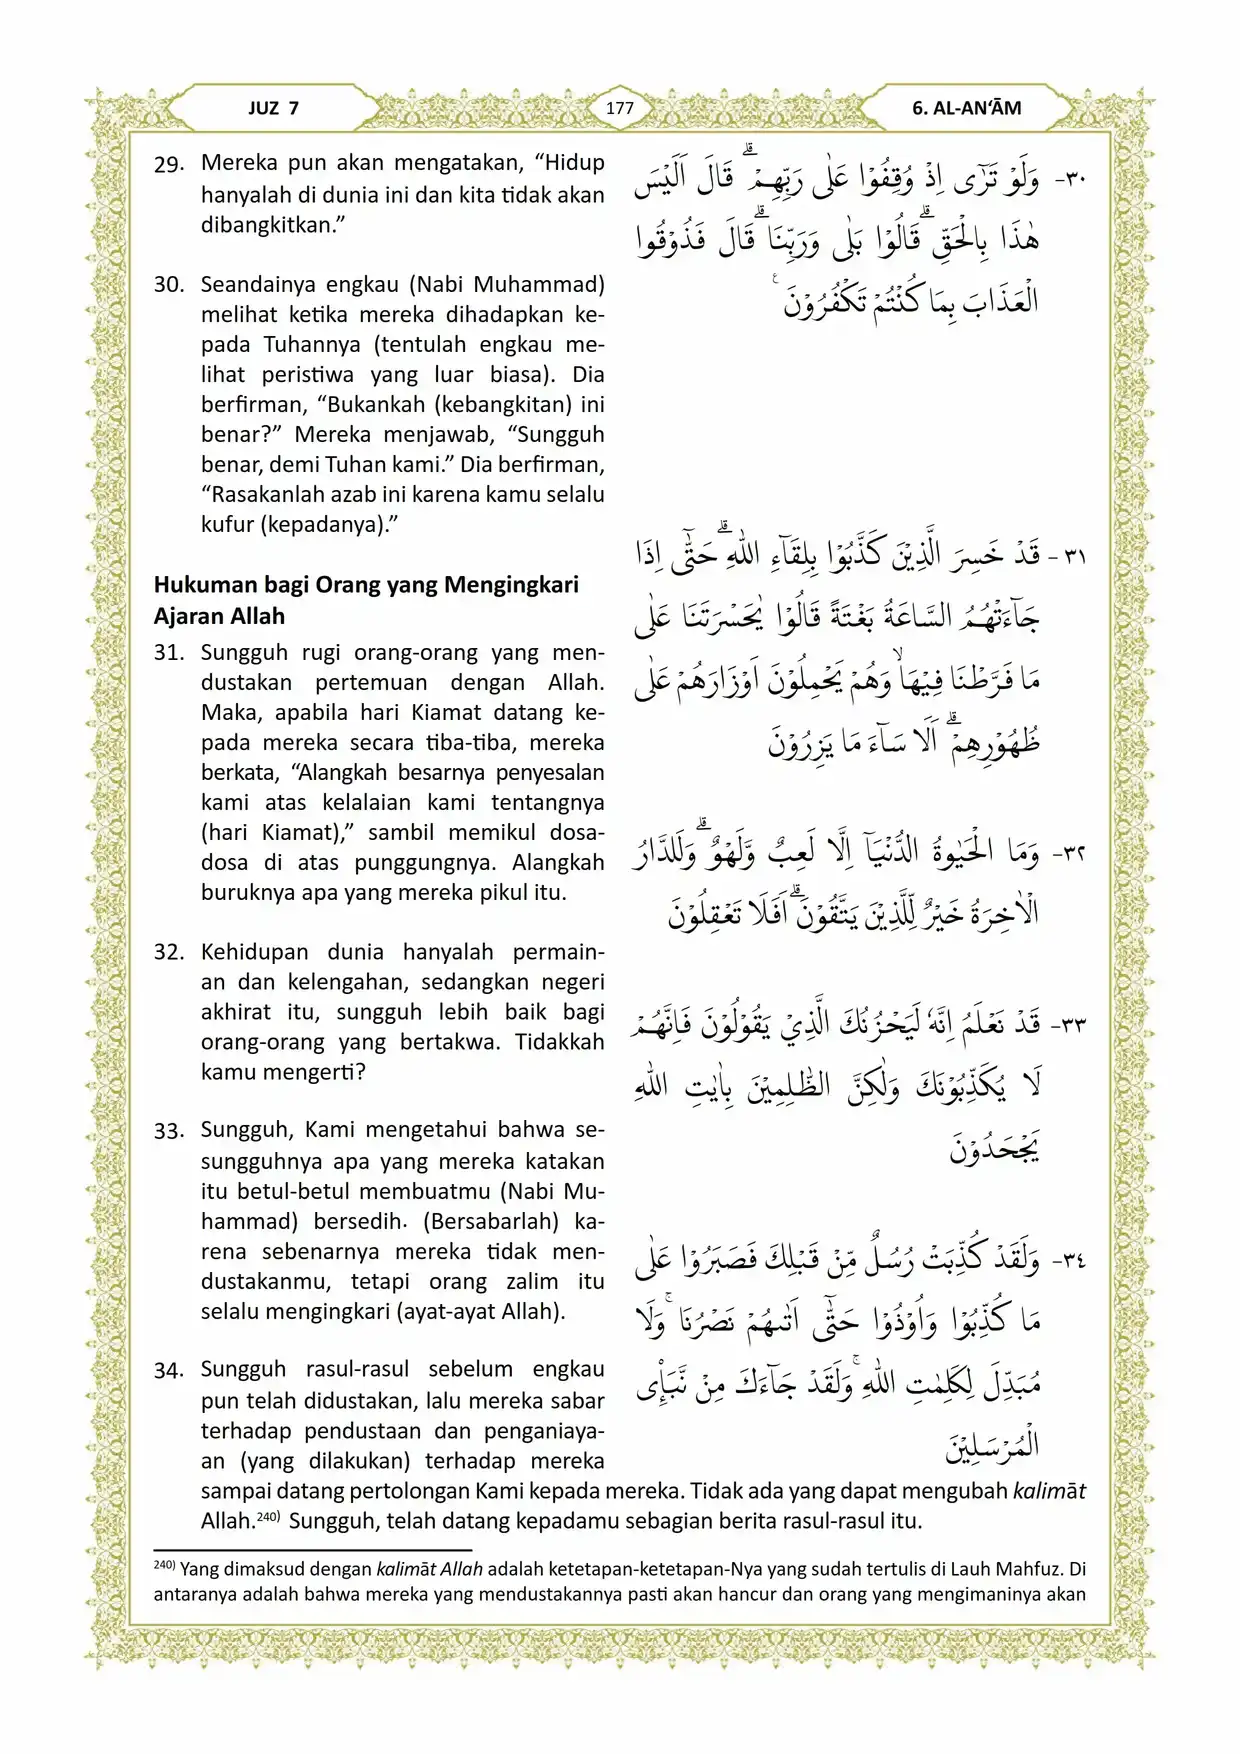 JUZ 7
177
6. AL-AN‘ĀM
29. Mereka pun akan mengatakan, “Hidup
hanyalah di dunia ini dan kita tidak akan
dibangkitkan.”
30. Seandainya engkau (Nabi Muhammad)
melihat ketika mereka dihadapkan ke-
pada Tuhannya (tentulah engkau me-
lihat peristiwa yang luar biasa). Dia
berfirman, “Bukankah (kebangkitan) ini
benar?” Mereka menjawab, “Sungguh
benar, demi Tuhan kami.” Dia berfirman,
“Rasakanlah azab ini karena kamu selalu
kufur (kepadanya).”
Hukuman bagi Orang yang Mengingkari
Ajaran Allah
31. Sungguh rugi orang-orang yang men-
dustakan pertemuan dengan Allah.
Maka, apabila hari Kiamat datang ke-
pada mereka secara tiba-tiba, mereka
berkata, “Alangkah besarnya penyesalan
kami atas kelalaian kami tentangnya
(hari Kiamat),” sambil memikul dosa-
dosa di atas punggungnya. Alangkah
buruknya apa yang mereka pikul itu.
32. Kehidupan dunia hanyalah permain-
an dan kelengahan, sedangkan negeri
akhirat itu, sungguh lebih baik bagi
orang-orang yang bertakwa. Tidakkah
kamu mengerti?
33. Sungguh, Kami mengetahui bahwa se-
sungguhnya apa yang mereka katakan
itu betul-betul membuatmu (Nabi Mu-
hammad) bersedih. (Bersabarlah) ka-
rena sebenarnya mereka tidak men-
dustakanmu, tetapi orang zalim itu
selalu mengingkari (ayat-ayat Allah).
34. Sungguh rasul-rasul sebelum engkau
pun telah didustakan, lalu mereka sabar
terhadap pendustaan dan penganiaya-
an (yang dilakukan) terhadap mereka
sampai datang pertolongan Kami kepada mereka. Tidak ada yang dapat mengubah kalimāt
Allah.²⁴⁰⁾ Sungguh, telah datang kepadamu sebagian berita rasul-rasul itu.
٣٠- وَلَوْ تَرٰٓى اِذْ وُقِفُوْا عَلٰى رَبِّهِمْ ۗ قَالَ اَلَيْسَ
هٰذَا بِالْحَقِّ ۗ قَالُوْا بَلٰى وَرَبِّنَا ۗ قَالَ فَذُوْقُوا
الْعَذَابَ بِمَا كُنْتُمْ تَكْفُرُوْنَ ࣖ
٣١- قَدْ خَسِرَ الَّذِيْنَ كَذَّبُوْا بِلِقَاۤءِ اللّٰهِ ۗ حَتّٰٓى اِذَا
جَاۤءَتْهُمُ السَّاعَةُ بَغْتَةً قَالُوْا يٰحَسْرَتَنَا عَلٰى
مَا فَرَّطْنَا فِيْهَاۙ وَهُمْ يَحْمِلُوْنَ اَوْزَارَهُمْ عَلٰى
ظُهُوْرِهِمْ ۗ اَلَا سَاۤءَ مَا يَزِرُوْنَ
٣٢- وَمَا الْحَيٰوةُ الدُّنْيَآ اِلَّا لَعِبٌ وَّلَهْوٌ ۗ وَلَلدَّارُ
الْاٰخِرَةُ خَيْرٌ لِّلَّذِيْنَ يَتَّقُوْنَ ۗ اَفَلَا تَعْقِلُوْنَ
٣٣- قَدْ نَعْلَمُ اِنَّهٗ لَيَحْزُنُكَ الَّذِيْ يَقُوْلُوْنَ فَاِنَّهُمْ
لَا يُكَذِّبُوْنَكَ وَلٰكِنَّ الظّٰلِمِيْنَ بِاٰيٰتِ اللّٰهِ
يَجْحَدُوْنَ
٣٤- وَلَقَدْ كُذِّبَتْ رُسُلٌ مِّنْ قَبْلِكَ فَصَبَرُوْا عَلٰى
مَا كُذِّبُوْا وَاُوْذُوْا حَتّٰٓى اَتٰىهُمْ نَصْرُنَا ۚ وَلَا
مُبَدِّلَ لِكَلِمٰتِ اللّٰهِ ۚ وَلَقَدْ جَاۤءَكَ مِنْ نَّبَإِى
الْمُرْسَلِيْنَ
²⁴⁰⁾ Yang dimaksud dengan kalimāt Allah adalah ketetapan-ketetapan-Nya yang sudah tertulis di Lauh Mahfuz. Di
antaranya adalah bahwa mereka yang mendustakannya pasti akan hancur dan orang yang mengimaninya akan